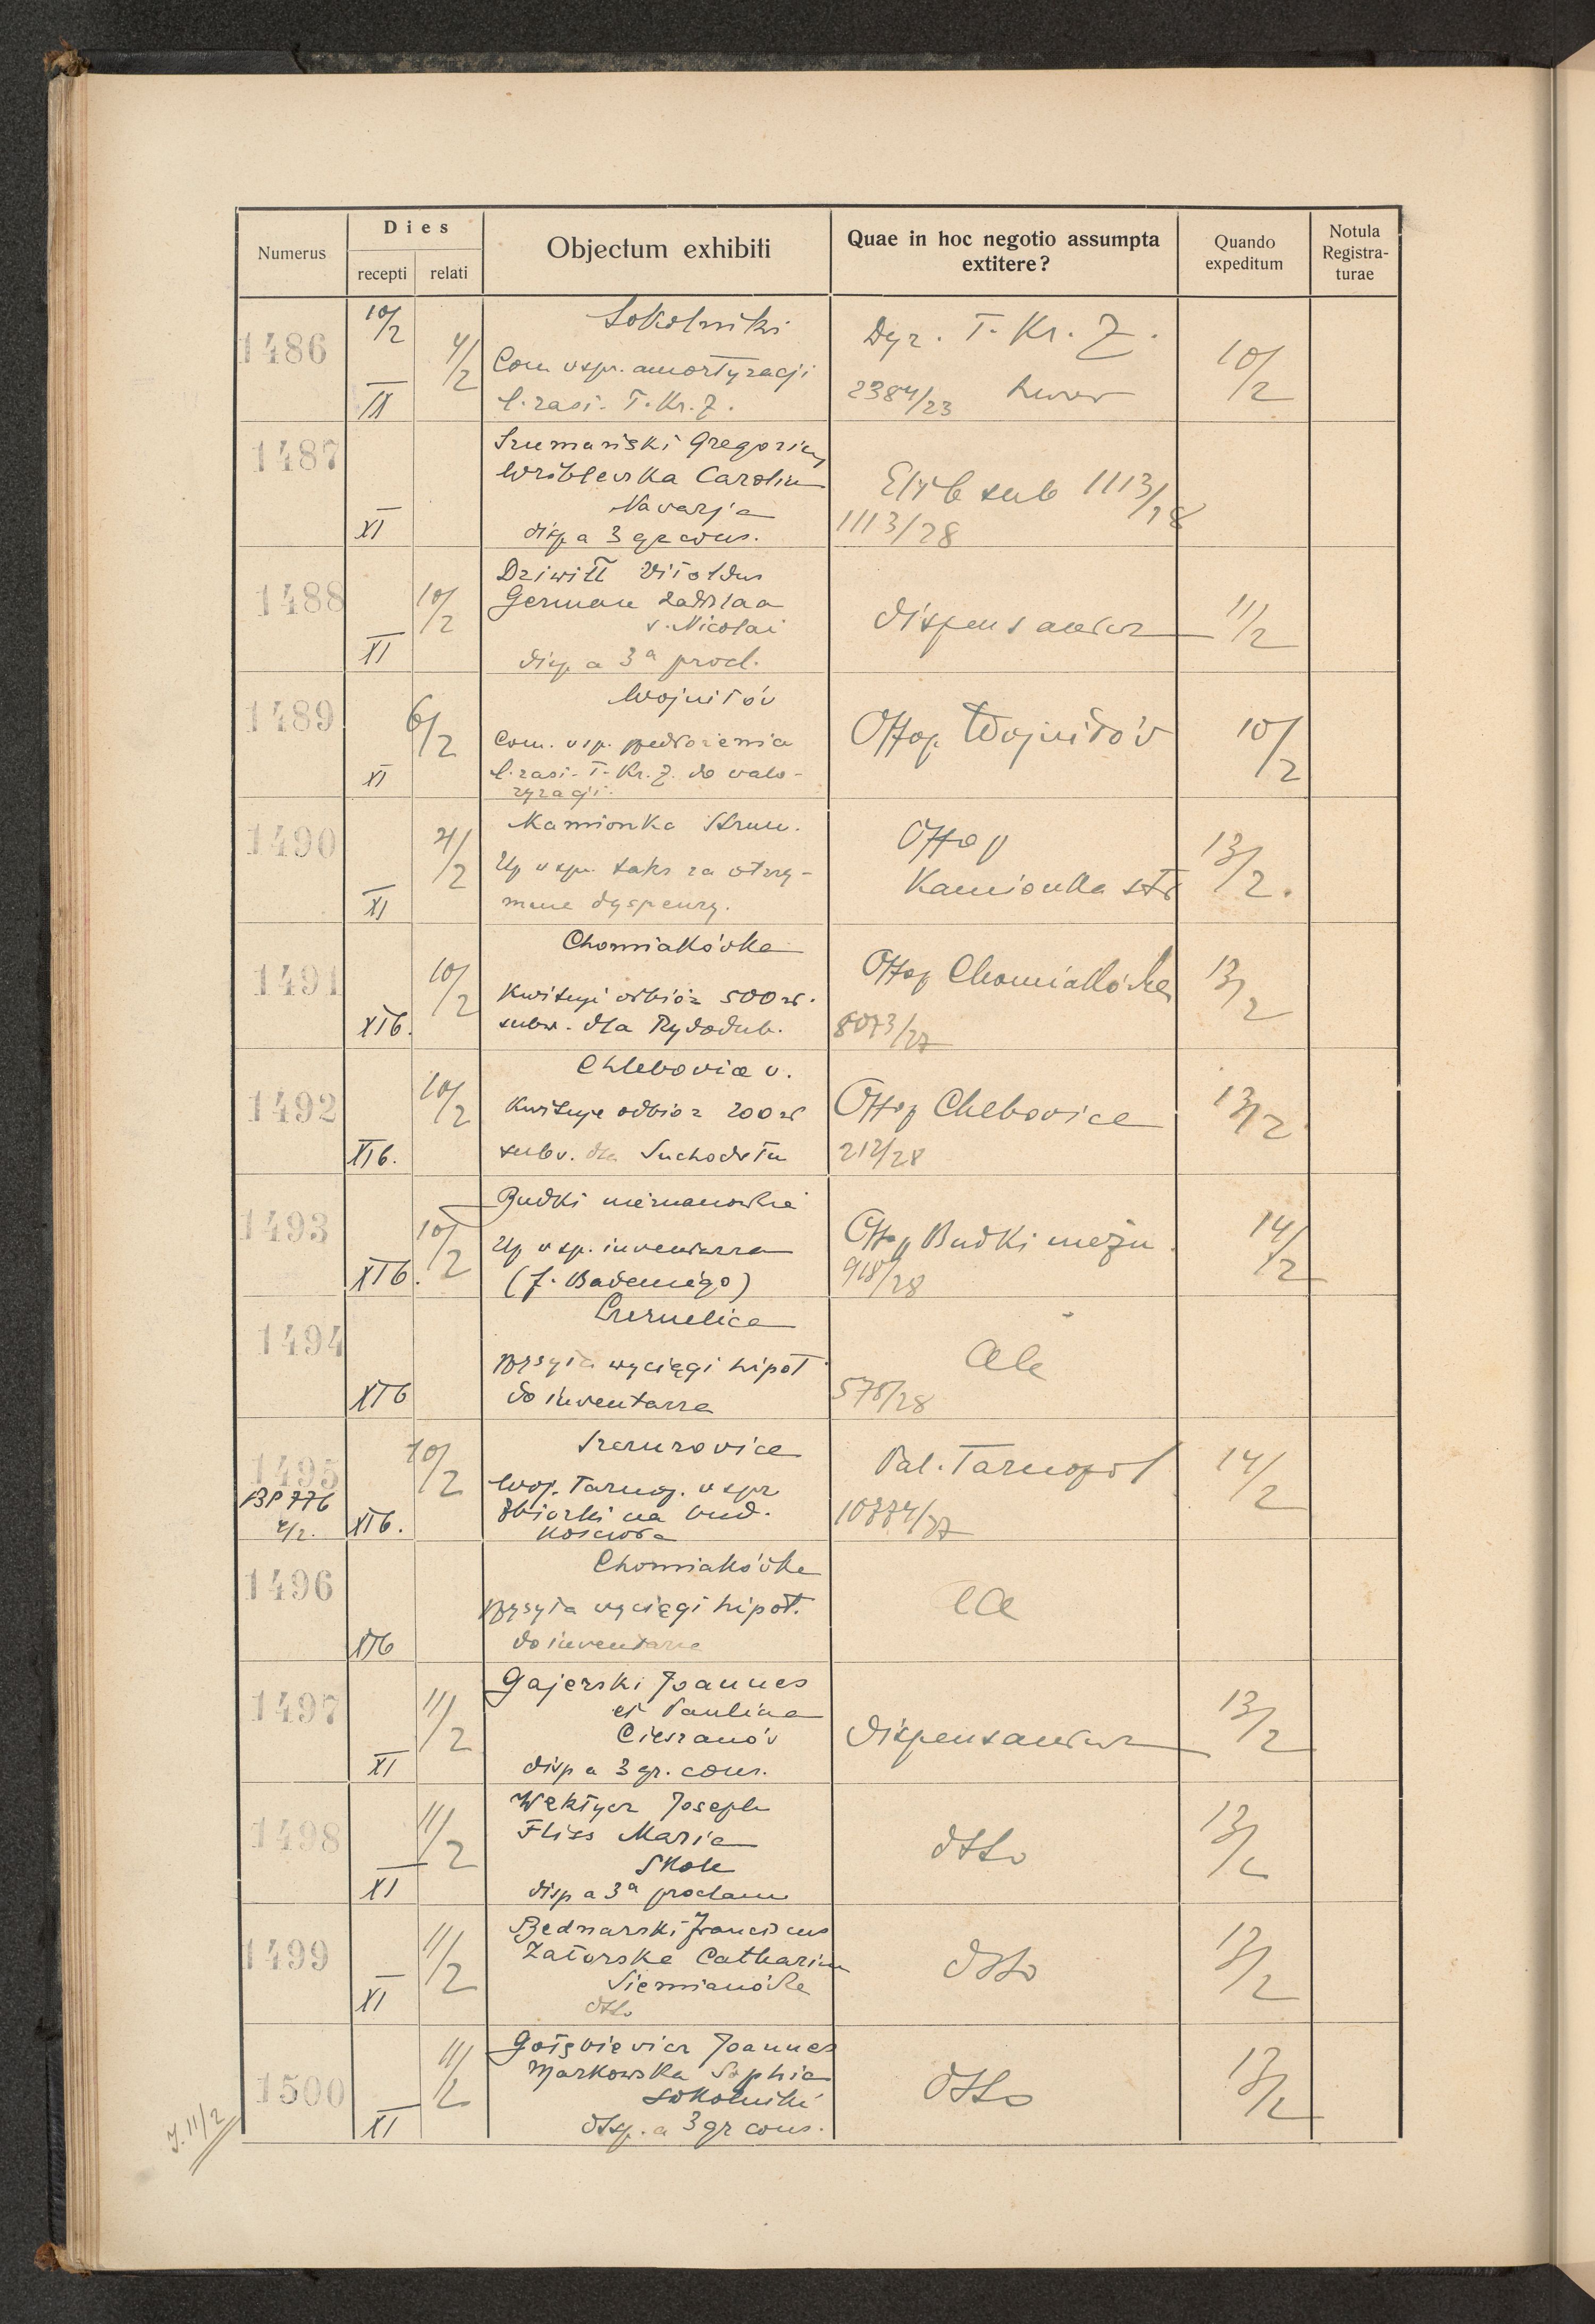 Numerus
Dies
recepti relati
Objectum exhibiti
Quae in hoc negotio assumpta
extitere?
Quando
expeditum
Notula
Registra-
turae
1486 10/2 4/2 IX
Sokolniki
Com v spr. amortyzacji
T. Kr. Z.
Dyr. T. Kr. Z.
2384/23
10/2
1487 XI
Szumański Gregorius
Wróblevska Carolin
Navarja
disp a 3 gr cons.
sub 1113/28
1113/28
1488 10/2 XI
Dziwiłł Vitoldus
German
s. Nicolai
disp a 3a procl.
dispensantur
11/2
1489 6/2 XI
Wojniłów
Com. v sp.
T. Kr. Z. do valo-
ryzacji.
Offop Wojniłów
10/2
1490 4/2 XI
Kamionka Strum.
Up v spr. taks za otrzy-
mane dyspenzy.
Offop
Kamionka str
13/2.
1491 10/2 XIb.
Chomiakóvka
Kwituje odbiór 500 zł.
subw. dla Rydodub.
Offop Chomiakóvka
8073/27
13/2
1492 10/2 XIb.
Chlebovice v.
Kwituje odbiór 200 zł
subv. dla Suchodołu
Offop Chlebovice
212/28
13/2
1493 10/2 XIb.
Budki nieznanowskie
Up v sp. inventarza
(f. Badeniego)
Offop Budki niezn.
918/28
14/2
1494 XIb
Czernelica
wyciągi hipot
do inventarza
578/28
1495 BP 776 4/2. 10/2 XIb.
Szczurovice
Woj. Tarnop. v spr
zbiórki na bud.
Kościoła
Pal. Tarnopol
10774/27
14/2
1496 XIb
Chomiakóvka
wyciągi hipot.
do inventarza
1497 11/2 XI
Gajerski Joannes
et Paulina
Cieszanóv
disp a 3 gr. cons.
dispensantur
13/2
1498 11/2 XI
Joseph
Fliss Maria
Skole
disp a 3a proclam
dtto
13/2
1499 11/2 XI
Bednarski Franciscus
Zatorska Catharina
Siemianówka
dtto
dtto
13/2
1500 11/2 XI
Joannes
Markowska Sophia
Sokolniki
disp. a 3 gr cons.
dtto
13/2
11/2